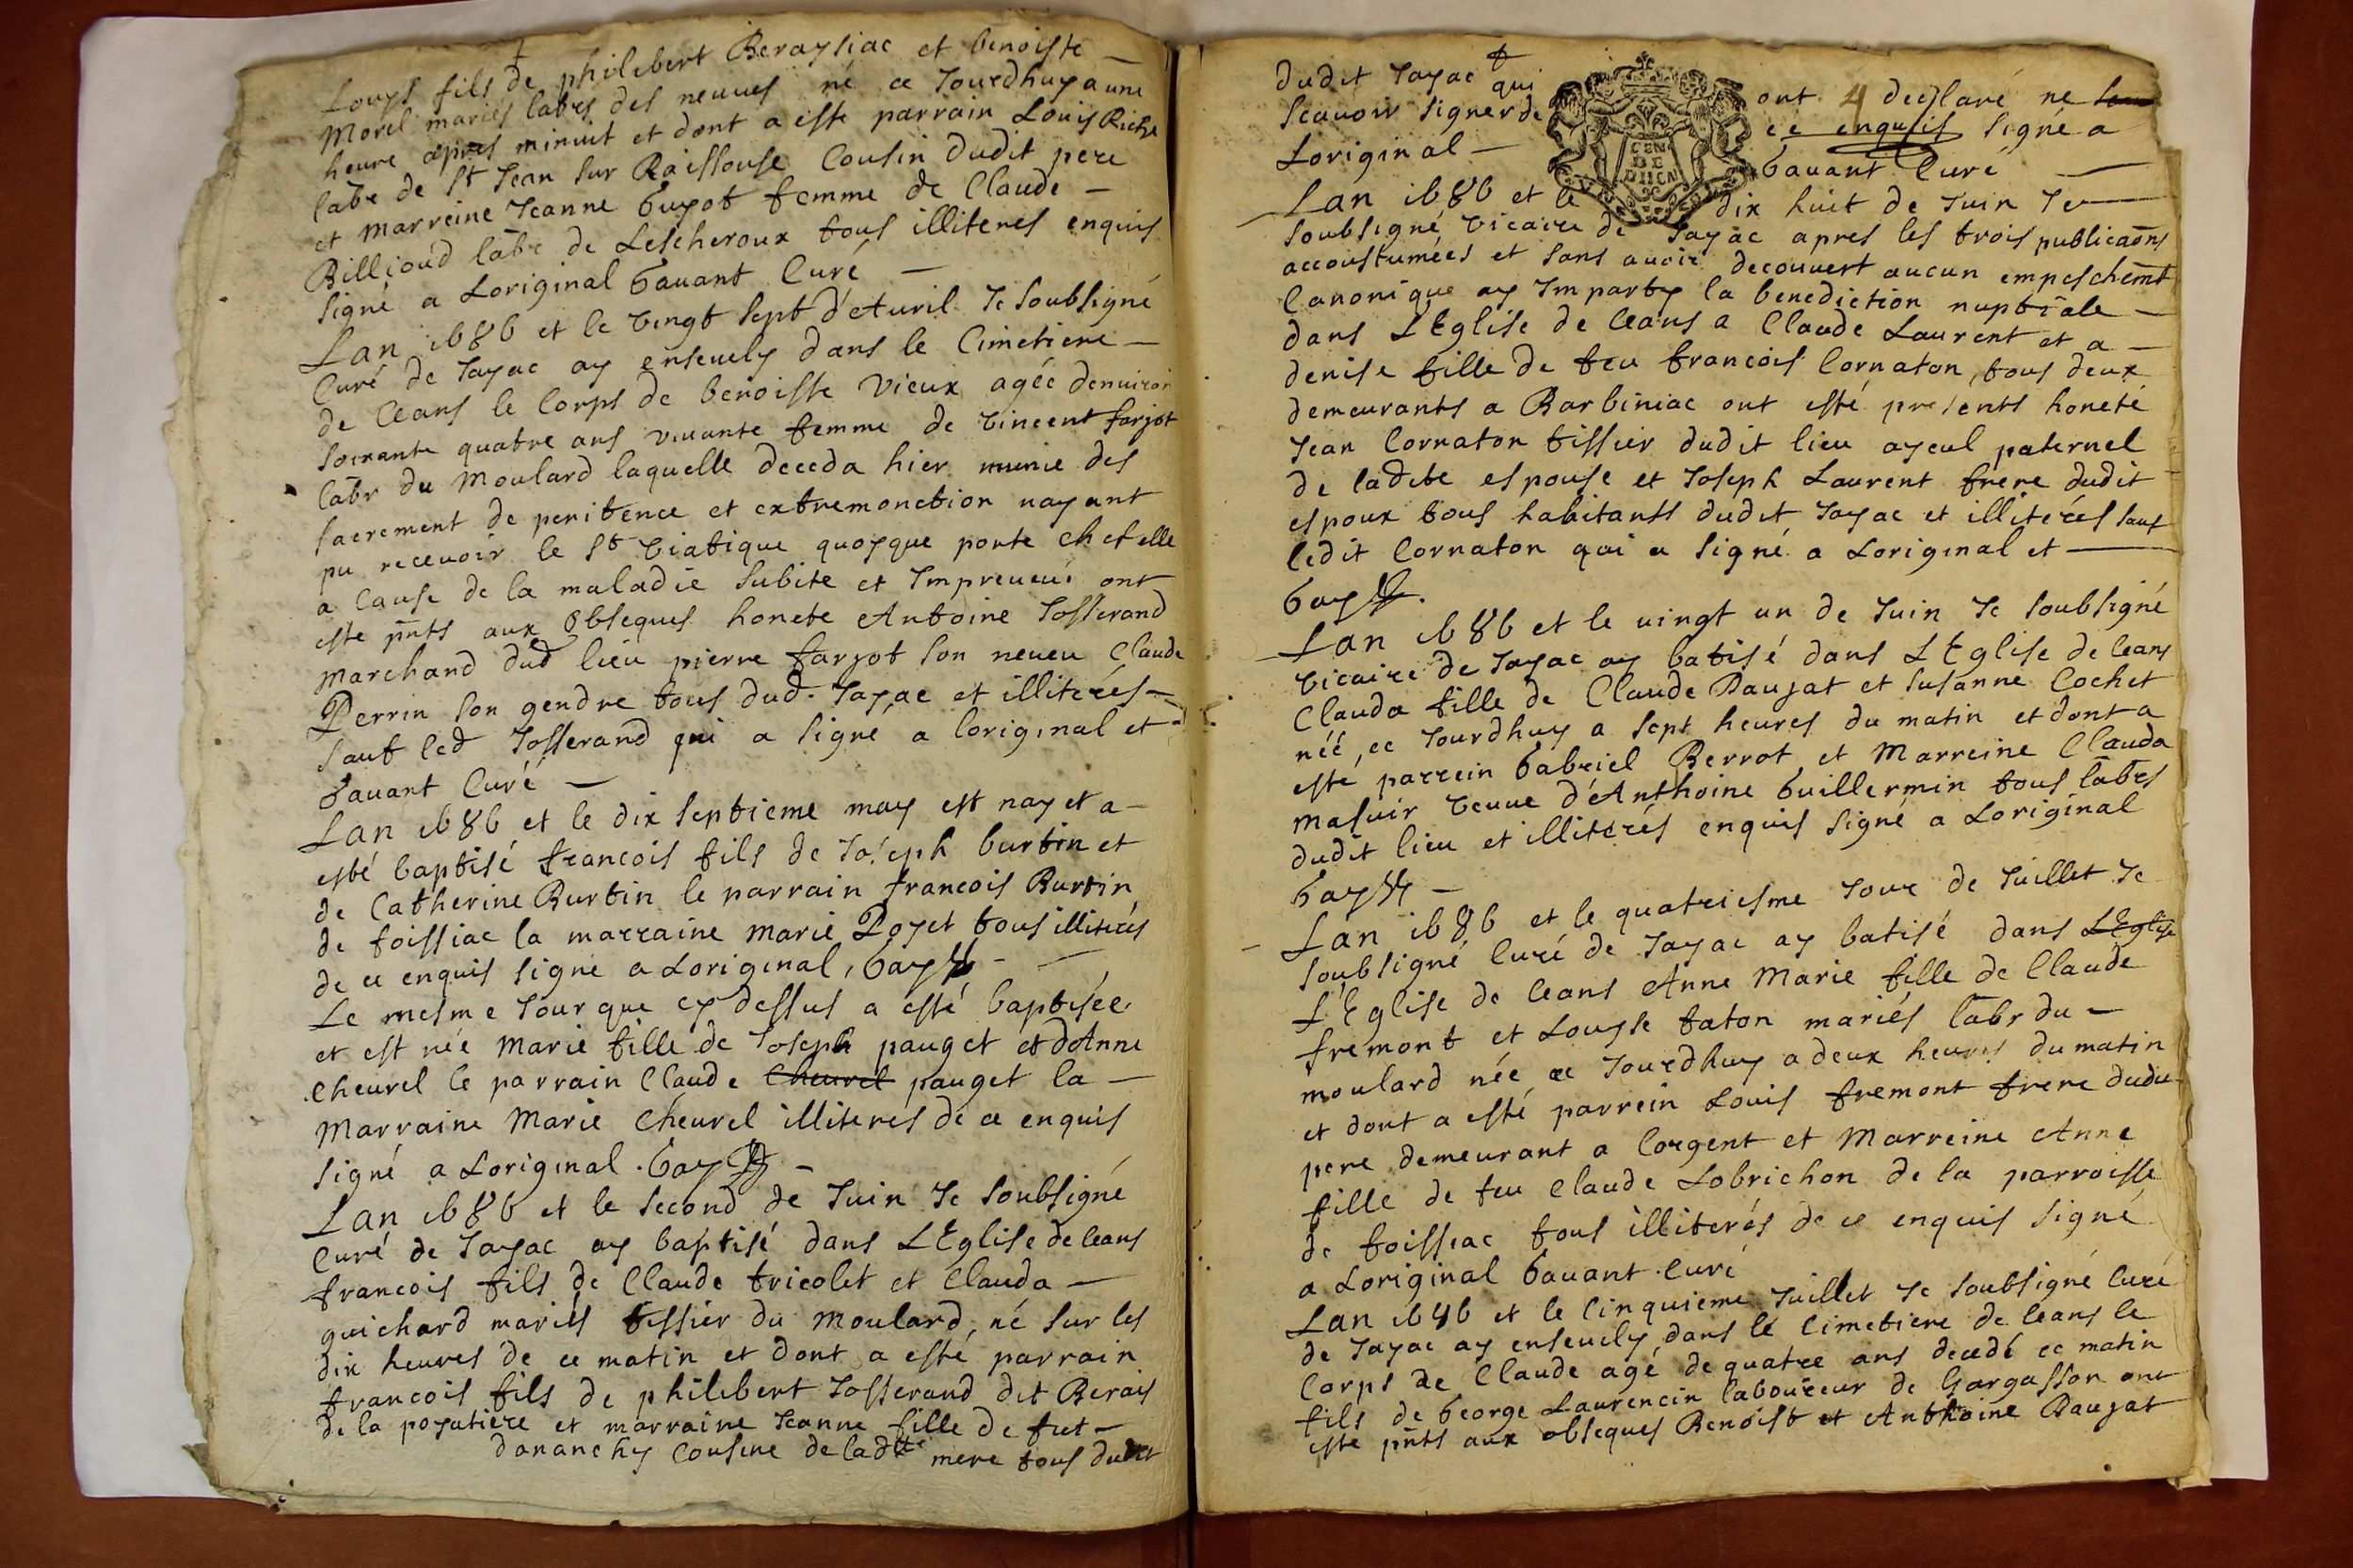 Louys fils de philibert Beraysiac et benoiste
Morel mariés labrs des neuues né ce Jourdhuy a une
heure apres minuit et dont a este parrain Louis Riche
labr de St Jean sur Raissouse Cousin dudit pere
et marreine Jeanne Guyot femme de Claude
Billioud labr de Lescheroux tous illiteres enquis
signé a Loriginal Gauant Curé
Lan 1686 et le vingt sept d'Auril Je soubsigné
Curé de Jayac ay enseuely dans le Cimetiere
de Ceans le Corps de benoiste vieux agée denuiron
soixante quatre ans viuante femme de vincent farjot
labr du Moulard laquelle deceda hier munie des
sacrement de penitence et extremonction nayant
pu recevoir le St viatique quoyque porte chef elle
a Cause de la maladie subite et Impreueue ont
este pnts aux Obseques honete Antoine Josserand
marchand dud lieu pierre farjot son neueu Claude
Perrin son gendre tous dud. Jayac et illiterés
sauf led Josserand qui a signé a loriginal et
Gauant Curé
Lan 1686 et le dix septieme may est nay et a
esté baptisé francois fils de Joseph burtin et
de Catherine Burtin le parrain francois Burtin
de foissiac la marraine marie Poyet tous illiterés
de ce enquis signé a Loriginal, Gay
Le mesme Jour que cy dessus a esté baptisée
et est née Marie fille de Joseph pauget et dAnne
Cheurel le parrain Claude Cheurel pauget la
Marraine Marie Cheurel illiteres de ce enquis
signé a Loriginal. Gay
Lan 1686 et le second de Juin Je soubsigné
Curé de Jayac ay baptisé dans LEglise de Ceans
francois fils de Claude tricolet et Clauda
guichard mariés tissier du Moulard, né sur les
dix heures de ce matin et dont a esté parrain
francois fils de philibert Josserand dit Berais
de la poyatiere et marraine Jeanne fille de fut
dananchy Cousine de ladtte mere tous dudit
dudit Jayac qui ont declaré ne
scauoir signer de ce enquis signé a
Loriginal Gauant Curé
Lan 1686 et le dix huit de Juin Je
soubsigné vicaire de Jayac apres les trois publicaons
accoustumées et sans auoir decouuert aucun empeschemt
Canonique ay Imparty la benediction nuptiale
dans LEglise de Ceans a Claude Laurent et a
denise fille de feu francois Cornaton, tous deux
demeurants a Barbiniac ont esté presents honeté
Jean Cornaton tissier dudit lieu ayeul paternel
de ladite espouse et Joseph Laurent frere dudit
espoux tous habitants dudit Jayac et illiterés sauf
ledit Cornaton qui a signé a Loriginal et
Gay
Lan 1686 et le vingt un de Juin Je soubsigné
vicaire de Jayac ay batisé dans LEglise de Ceans
Clauda fille de Claude Paujat et Susanne Cochet
néé, ce Jourdhuy a sept heures du matin et dont a
esté parrein Gabriel Berrot et Marreine Clauda
Masuir veuue d'Anthoine Guillermin tous labrs
dudit lieu et illiterés enquis signé a Loriginal
Gay
Lan 1686 et le quatriesme Jour de Juillet Je
soubsigné Curé de Jayac ay batisé dans LEglise
L'Eglise de Ceans Anne Marie fille de Claude
fremont et Louyse taton mariés labr du
moulard née ce Jourdhuy a deux heures du matin
et dont a esté parrein Louis fremont frere dudit
pere demeurant a Corgent et Marreine Anne
fille de feu Claude Lobrichon de la parroisse
de foissiac tous illiterés de ce enquis signé
a Loriginal Gauant Curé
Lan 1686 et le Cinquieme Juillet Je soubsigné Curé
de Jayac ay enseuely dans le Cimetiere de Ceans le
Corps de Claude agé de quatre ans decedé ce matin
fils de George Laurencin laboureur de Gargasson ont
esté pnts aux obseques Benoist et Anthoine Paujat